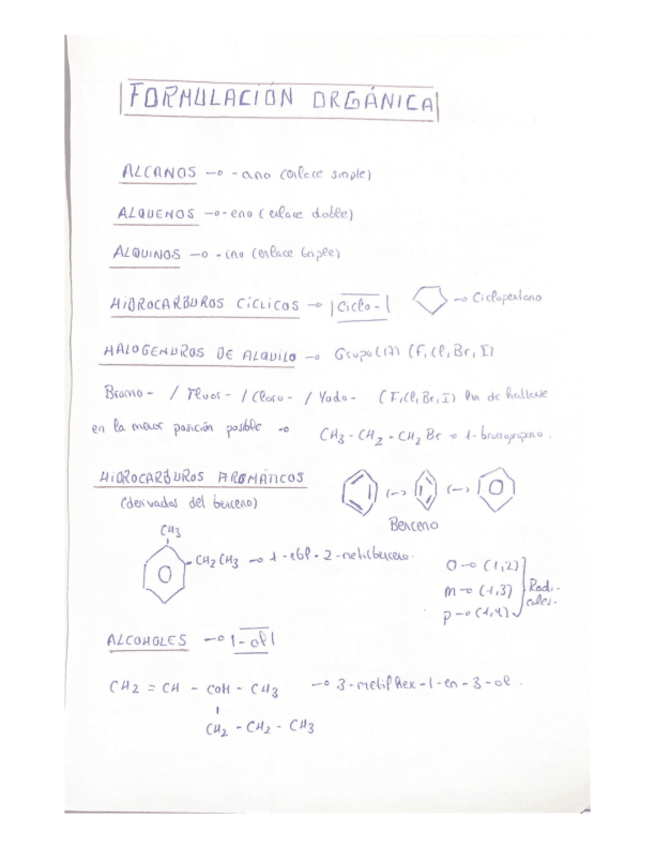 FORMULACIÓN ORGÁNICA
ALCANOS → -ano (enlace simple)
ALQUENOS → -eno (enlace doble)
ALQUINOS → -ino (enlace triple)
HIDROCARBUROS CÍCLICOS → |ciclo-| → Ciclopentano
HALOGENUROS DE ALQUILO → Grupo (17) (F, Cl, Br, I)
Bromo- / Fluor- / Cloro- / Yodo- (F, Cl, Br, I) ha de hallarse
en la menor posición posible → CH3 - CH2 - CH2 Br → 1-bromopropano.
HIDROCARBUROS AROMÁTICOS
(derivados del benceno)
Benceno
CH3
CH2CH3 → 1-etil-2-metilbenceno.
O → (1,2)
m → (1,3)
p → (1,4)
Radi-
cales.
ALCOHOLES → |-ol|
CH2 = CH - COH - CH3 → 3-metilhex-1-en-3-ol.
CH2 - CH2 - CH3